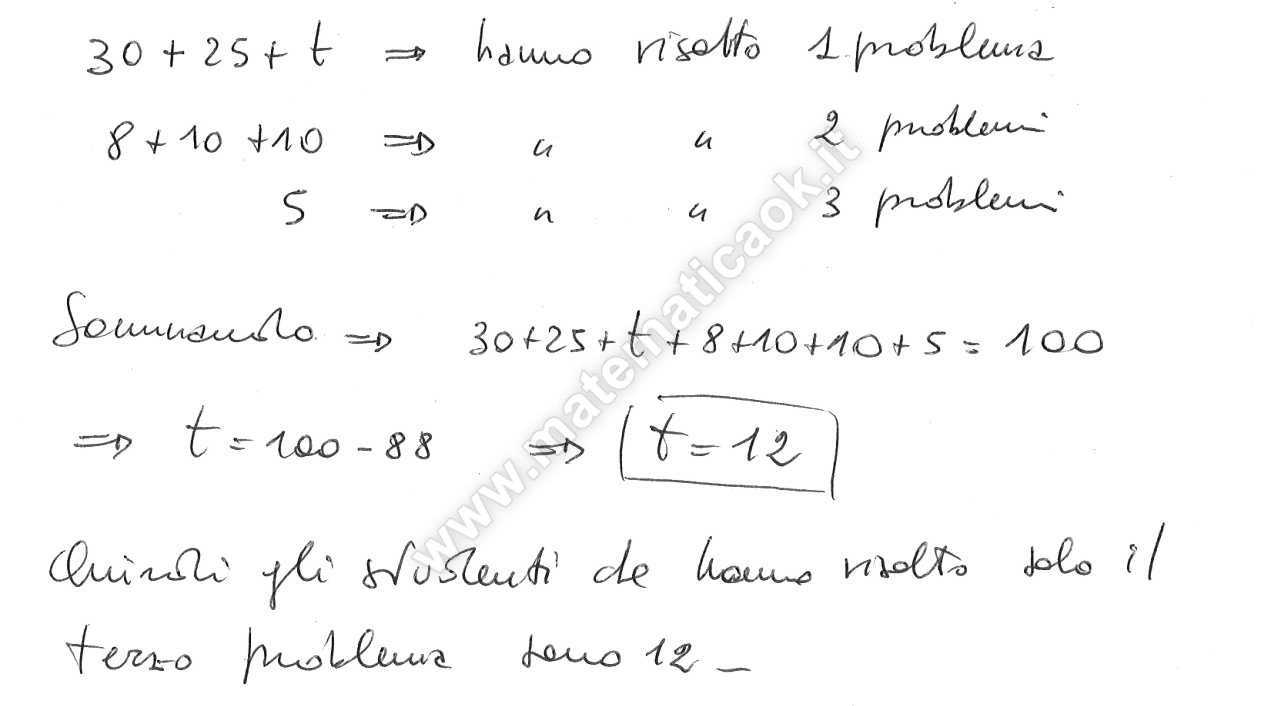 30+25+t ⇒ hanno risolto 1 problema
8+10+10 ⇒ " " 2 problemi
5 ⇒ " " 3 problemi
Sommando ⇒ 30+25+t+8+10+10+5=100
⇒ t=100-88 ⇒ t=12
Quindi gli studenti che hanno risolto solo il
terzo problema sono 12 -
www.matematicaok.it